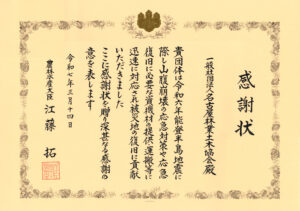 感謝状
一般社団法人名古屋林業土木協会殿
貴団体は令和六年能登半島地震に
際し山腹崩壊の応急対策や応急
復旧に必要な資機材の提供運搬等に
迅速に対応され被災地の復旧に貢献
いただきました
ここに感謝状を贈り深甚なる感謝の
意を表します
令和七年三月十四日
農林水産大臣 江藤 拓